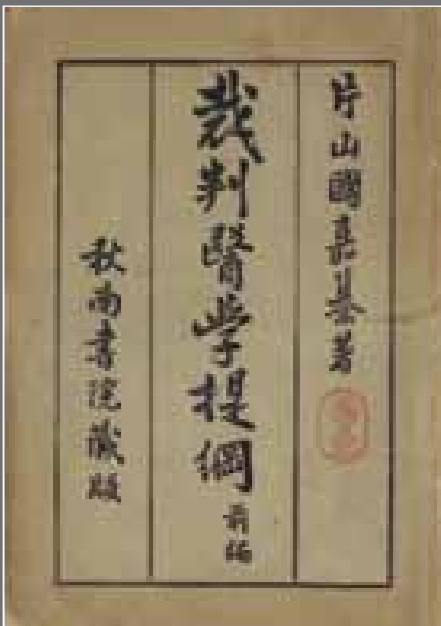 片山國嘉纂著
裁判醫學提綱 前編
秋南書院藏版